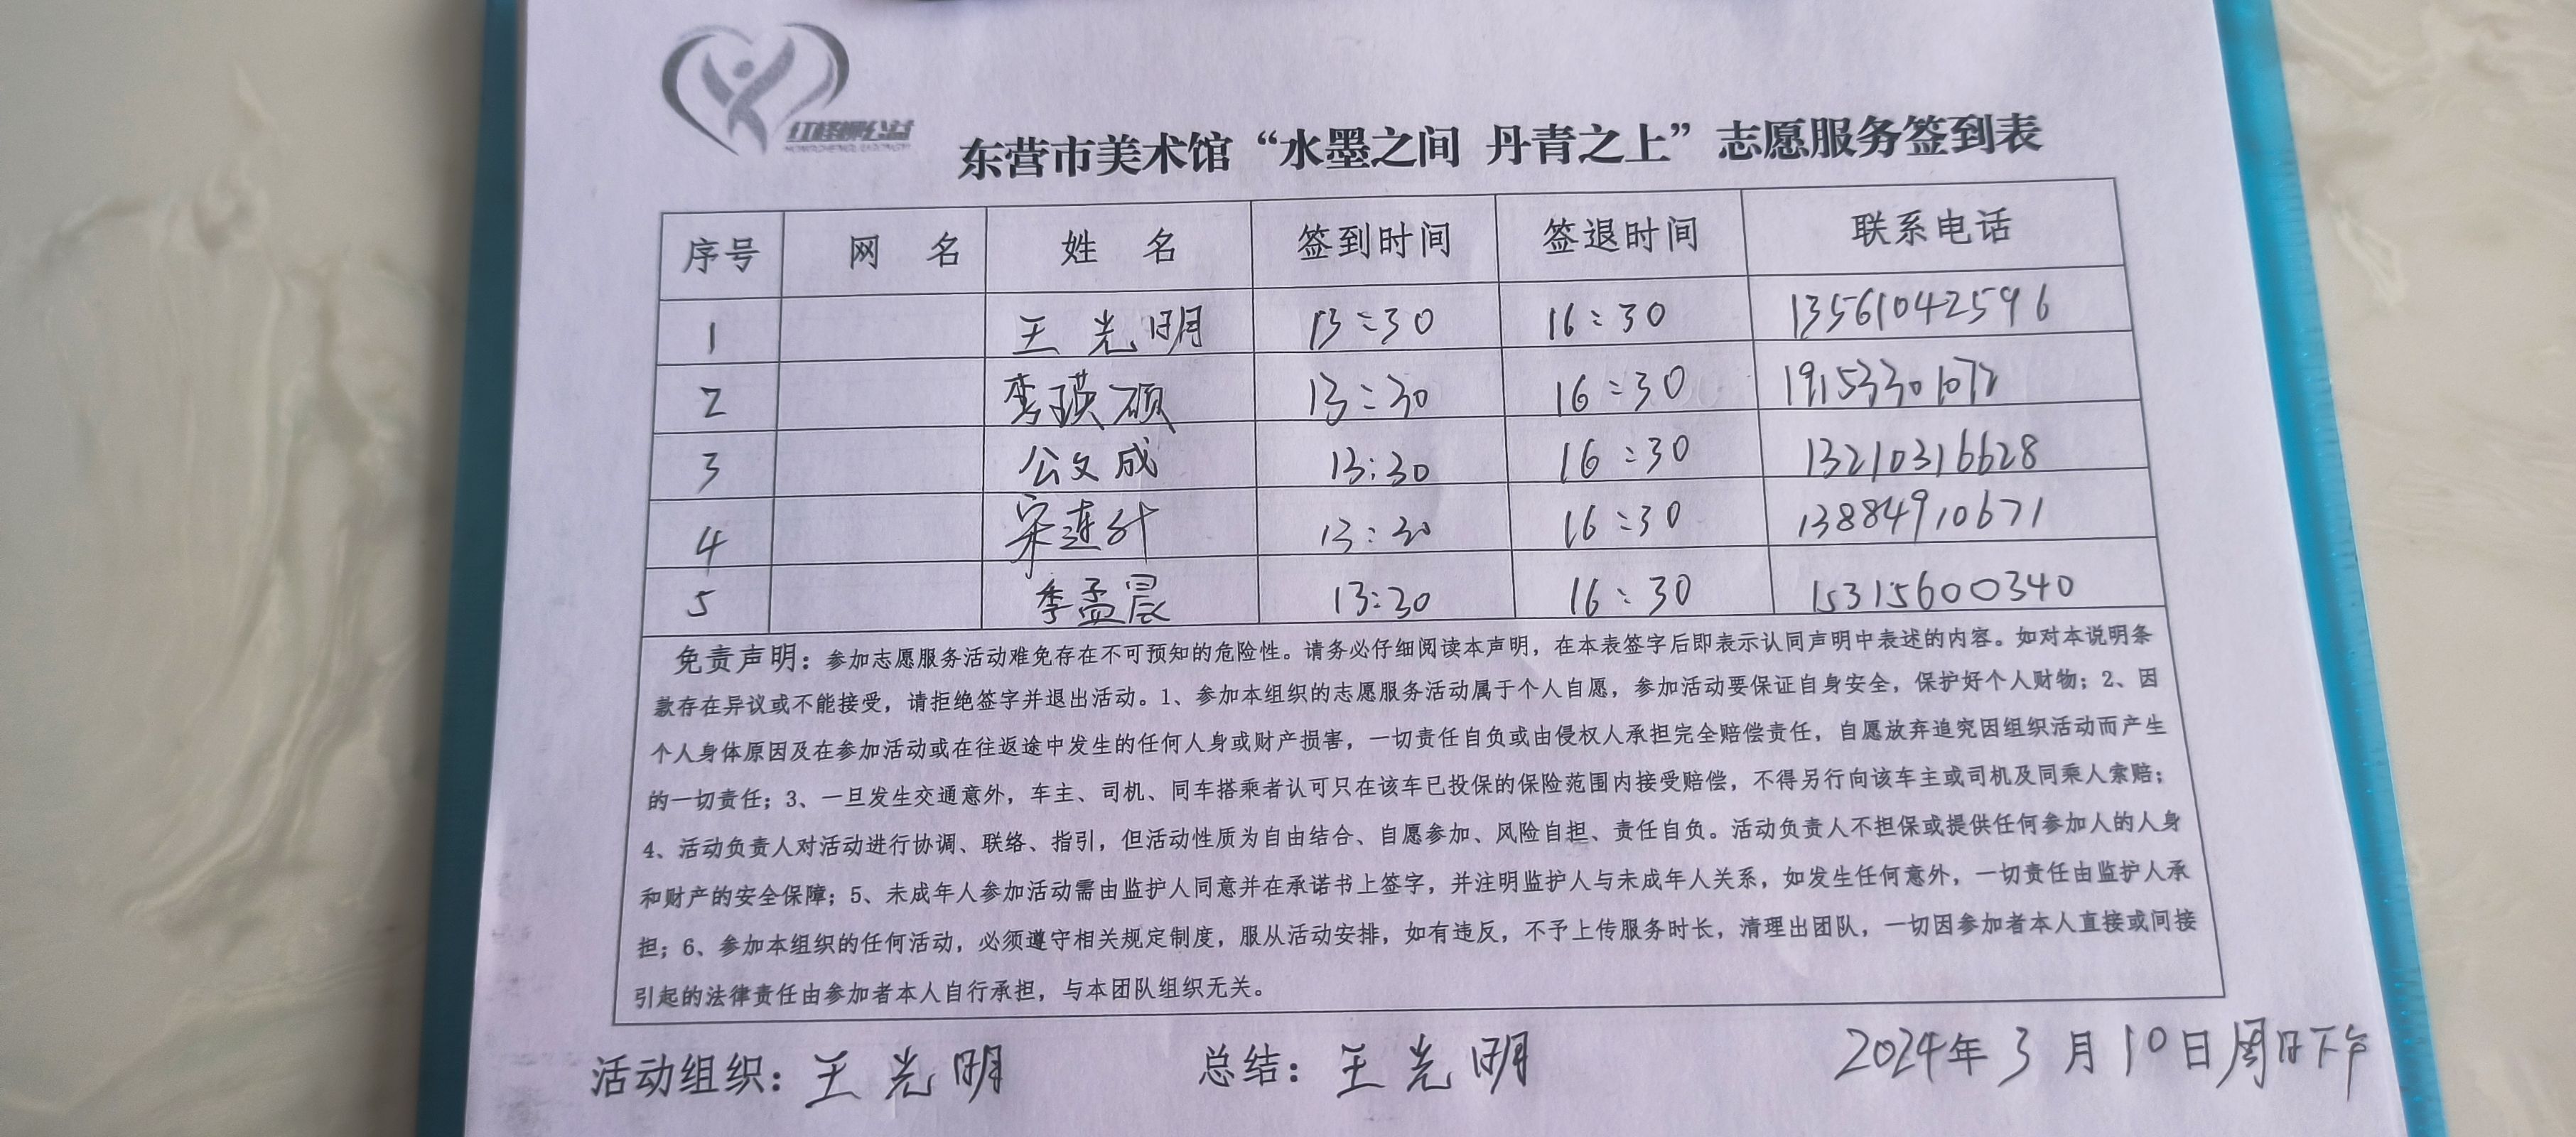 红柽柳公益
东营市美术馆“水墨之间 丹青之上”志愿服务签到表
序号 网 名 姓 名 签到时间 签退时间 联系电话
1 王光明 13:30 16:30 13561042596
2 李瑛硕 13:30 16:30 19153301072
3 公文成 13:30 16:30 13210316628
4 宋莲叶 13:30 16:30 13884910671
5 季孟晨 13:30 16:30 15315600340
免责声明：参加志愿服务活动难免存在不可预知的危险性。请务必仔细阅读本声明，在本表签字后即表示认同声明中表述的内容。如对本说明条
款存在异议或不能接受，请拒绝签字并退出活动。1、参加本组织的志愿服务活动属于个人自愿，参加活动要保证自身安全，保护好个人财物；2、因
个人身体原因及在参加活动或在往返途中发生的任何人身或财产损害，一切责任自负或由侵权人承担完全赔偿责任，自愿放弃追究因组织活动而产生
的一切责任；3、一旦发生交通意外，车主、司机、同车搭乘者认可只在该车已投保的保险范围内接受赔偿，不得另行向该车主或司机及同乘人索赔；
4、活动负责人对活动进行协调、联络、指引，但活动性质为自由结合、自愿参加、风险自担、责任自负。活动负责人不担保或提供任何参加人的人身
和财产的安全保障；5、未成年人参加活动需由监护人同意并在承诺书上签字，并注明监护人与未成年人关系，如发生任何意外，一切责任由监护人承
担；6、参加本组织的任何活动，必须遵守相关规定制度，服从活动安排，如有违反，不予上传服务时长，清理出团队，一切因参加者本人直接或间接
引起的法律责任由参加者本人自行承担，与本团队组织无关。
活动组织：王光明 总结：王光明 2024年3月10日周日下午